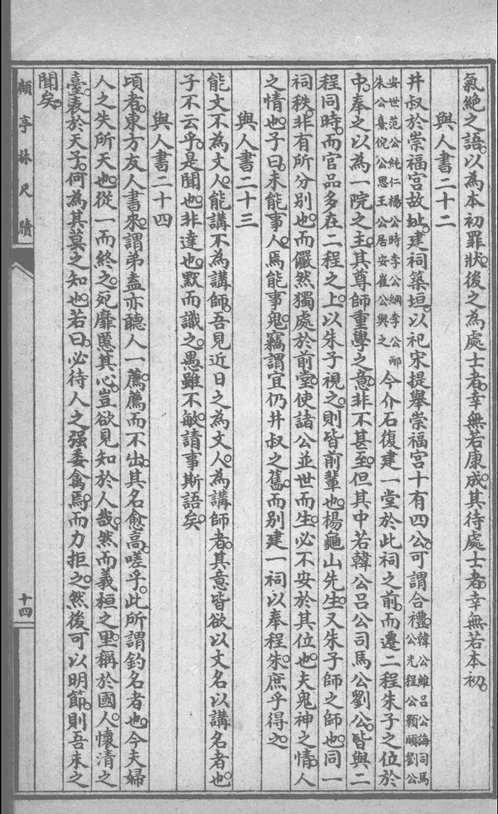 氣絕之語。以為本初罪狀。後之為處士者。幸無若康成。其待處士者。幸無若本初。
與人書二十二
井叔於崇福宮故址。建祠築垣。以祀宋提舉崇福宮十有四公。可謂合禮。韓公維呂公誨司馬公光程公顥頤劉公
安世范公純仁楊公時李公綱李公邴朱公熹倪公思王公居安崔公與之今介石復建一堂於此祠之前。而遷二程朱子之位於
中。奉之以為一院之主。其尊師重學之意。非不甚至。但其中若韓公呂公司馬公劉公。皆與二
程同時。而官品多在二程之上。以朱子視之。則皆前輩也。楊龜山先生。又朱子師之師也。同一
祠秩。非有所分別也。而儼然獨處於前堂。使諸公並世而生。必不安於其位也。夫鬼神之情。人
之情也。子曰。未能事人。焉能事鬼。竊謂宜仍井叔之舊。而別建一祠以奉程朱。庶乎得之。
與人書二十三
能文不為文人。能講不為講師。吾見近日之為文人。為講師者。其意皆欲以文名以講名者也。
子不云乎。是聞也。非達也。默而識之。愚雖不敏。請事斯語矣。
與人書二十四
頃者。東方友人書來。謂弟盍亦聽人一薦。薦而不出。其名愈高。嗟乎。此所謂釣名者也。今夫婦
人之失所天也。從一而終。之死靡慝。其心豈欲見知於人哉。然而義桓之里。稱於國人。懷清之
臺。表於天子。何為其莫之知也。若曰。必待人之强委禽焉。而力拒之。然後可以明節。則吾未之
聞矣。
顧亭林尺牘
十四